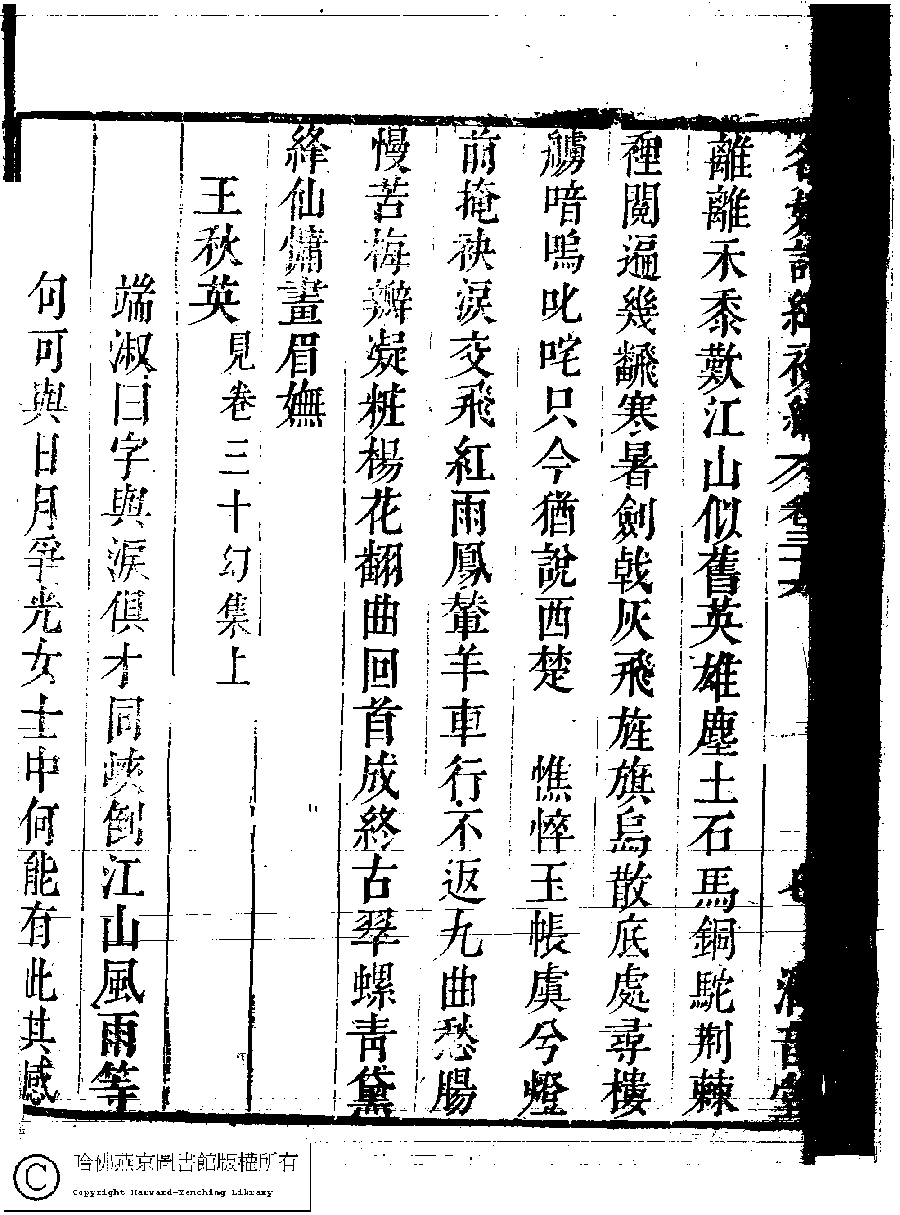 名媛詩緯初編 卷三十六 七 清音堂
離離禾黍歎江山似舊英雄塵土石馬銅駝荆棘
裡閱遍幾飜寒暑劍戟灰飛旌旗烏散底處尋樓
艣喑嗚叱咤只今猶說西楚 憔悴玉帳虞兮燈
前掩袂淚交飛紅雨鳳輦羊車行不返九曲愁腸
慢苦梅瓣凝粧楊花翻曲回首成終古翠螺青黛
絳仙慵畫眉嫵
王秋英 見卷三十幻集上
端淑曰字與淚俱才同峽倒江山風雨等
何可與日月爭光女士中何能有此其感
哈佛燕京圖書館版權所有
Copyright Harvard-Yenching Library